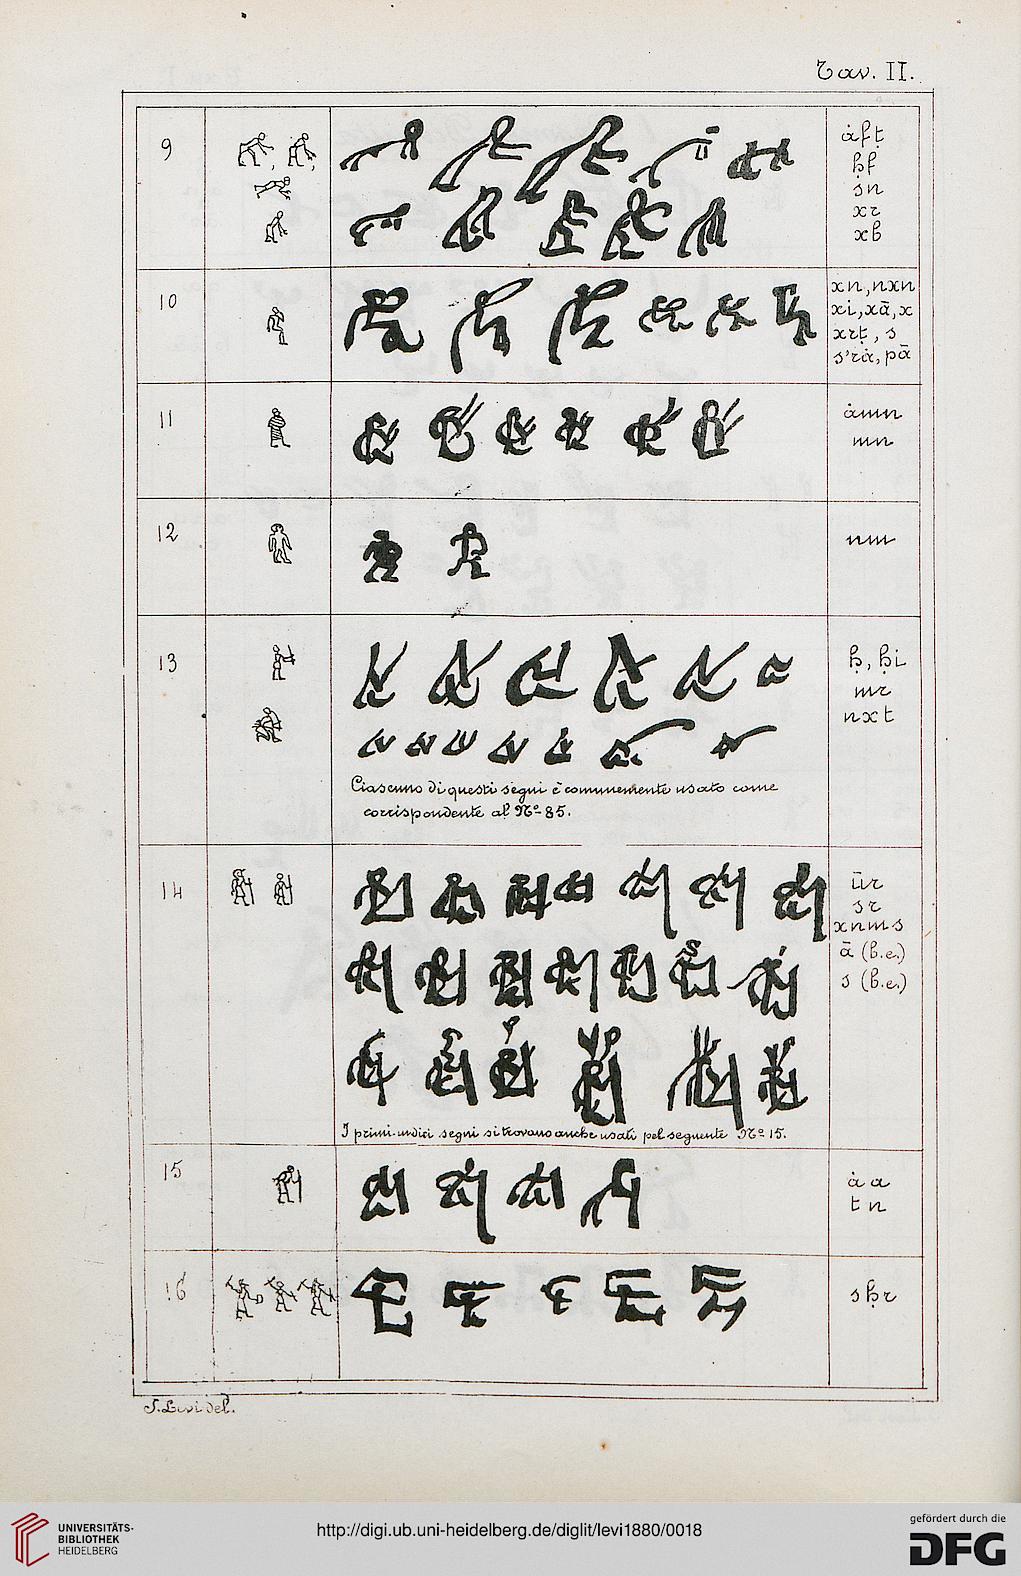 Tav. II.
9
ȧfṭ
ḥf
sn
xr
xb
10
xn, nxn
xi, xā, x
xrṭ, s
s'rȧ, pā
11
ȧmn
mn
12
nm
13
ḥ, ḥi
mr
nxt
Ciascuno di questi segni è comunemente usato come
corrispondente al Nº 85.
14
ūr
sr
xnms
ā (b.e.)
s (b.e.)
I primi undici segni si trovano anche usati pel seguente Nº 15.
15
ȧa
tn
16
sḥr
S. Levi del.
UNIVERSITÄTS-
BIBLIOTHEK
HEIDELBERG
http://digi.ub.uni-heidelberg.de/diglit/levi1880/0018
gefördert durch die
DFG